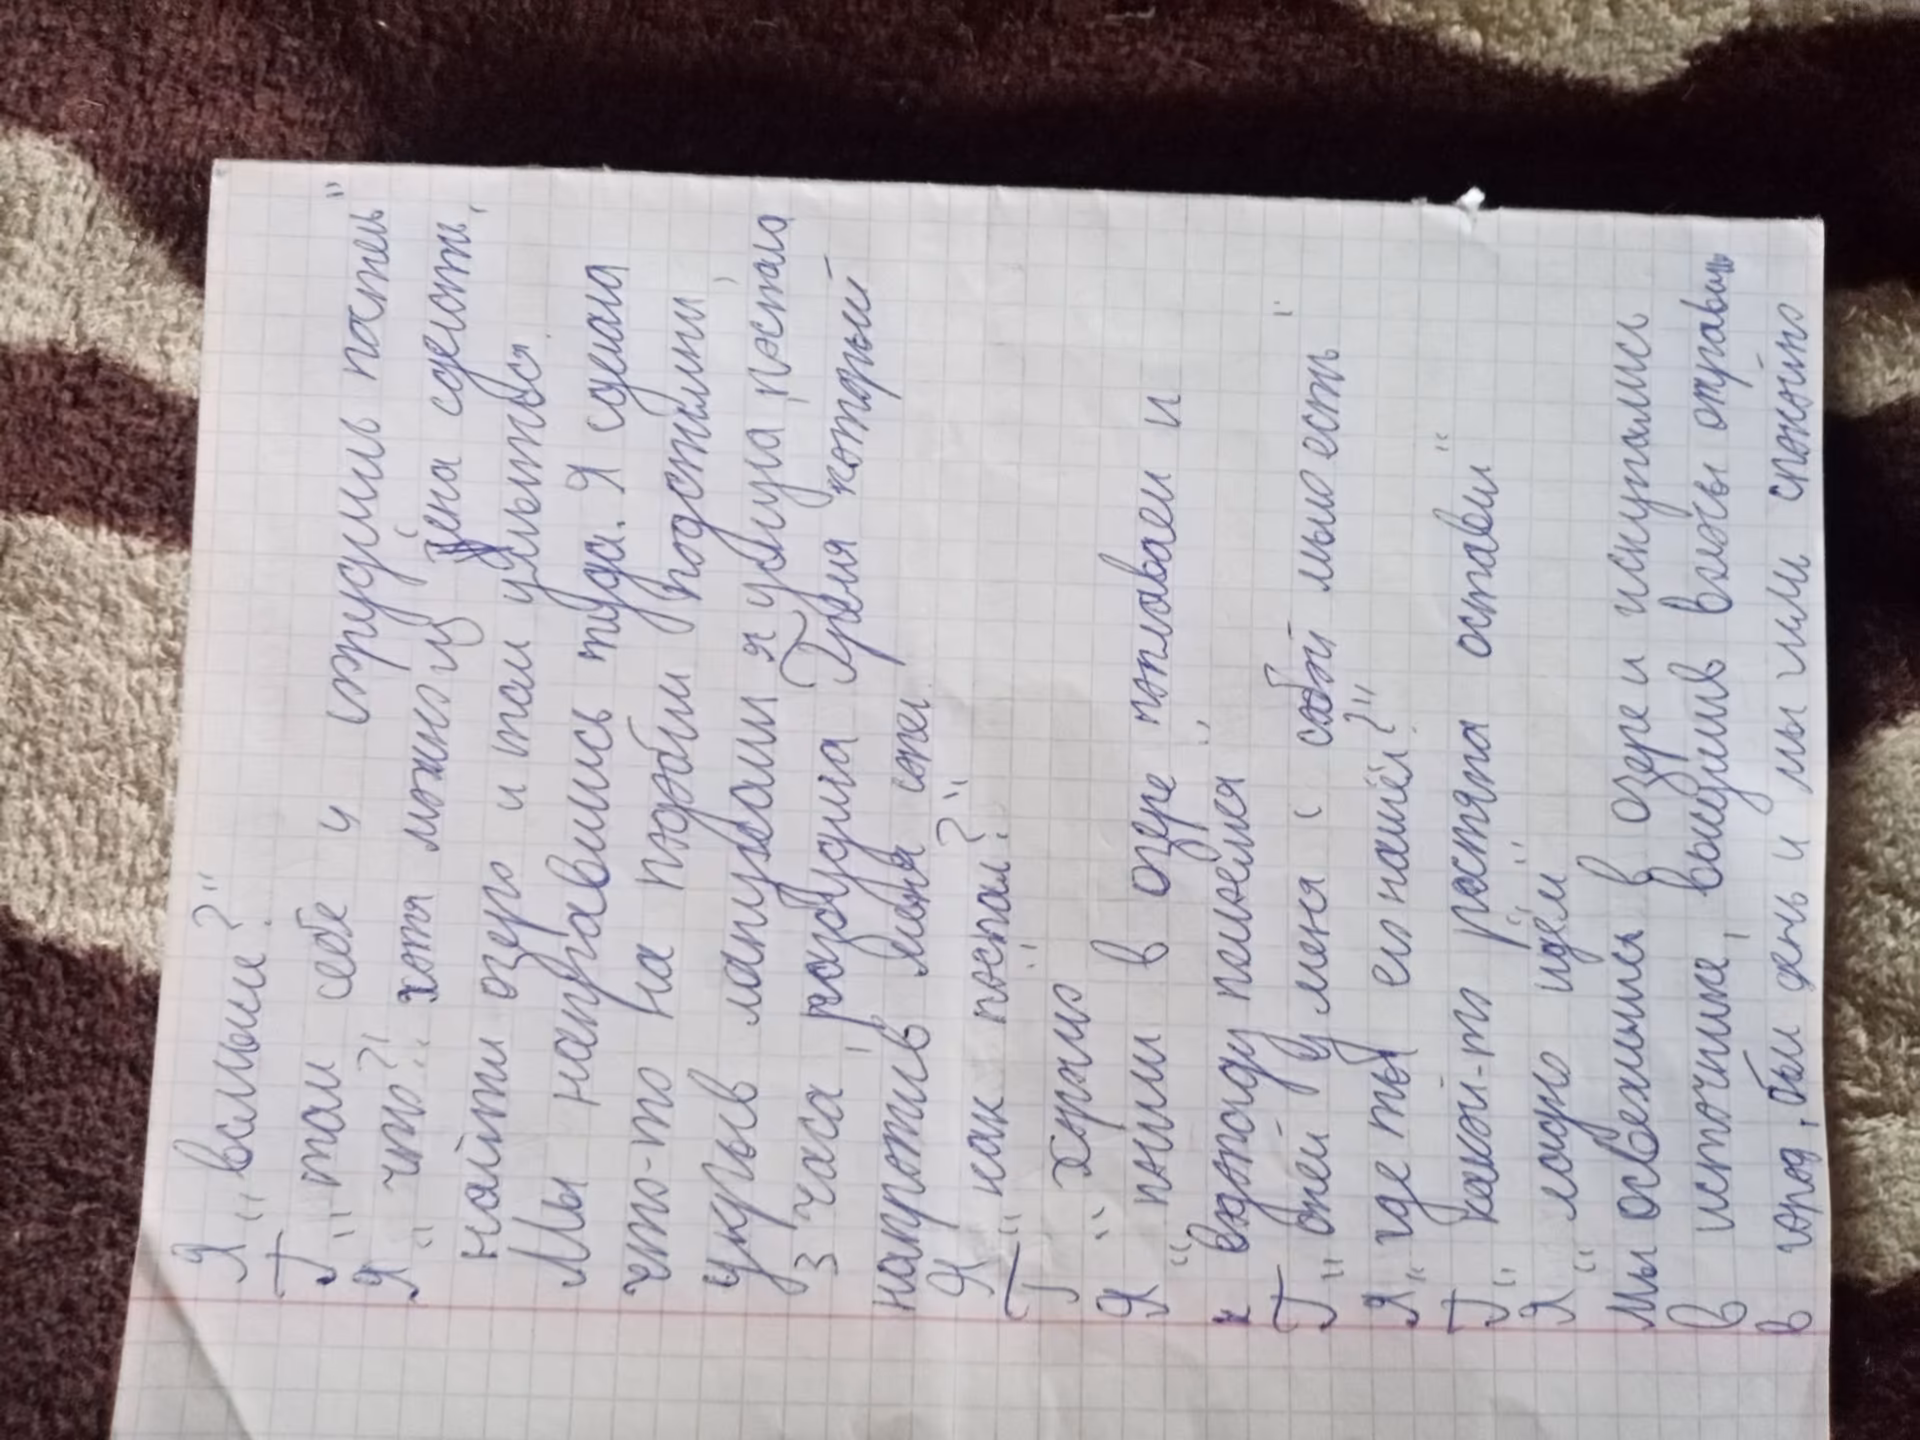 Я "в самые?"
Г "там себе и сорудим постель"
Я "что?! хотя можно из сена сделать,
найти озеро и там улыться.
Мы направились туда. Я сделала
что-то на подобии подстилки,
укрыв лапухами я уснула, поспала
3 часа, разбудила Грея который
напротив меня спал.
Я "как поспал?"
Г "хорхио"
Я "пошли в озере поплаваем и
к входу пойдёмся"
Г "окей у меня с собой мыло есть"
Я "где ты его нашёл?"
Г "какой-то растяпа оставил"
Я "ладно идём"
Мы освежились в озере и искупались
в источнике, высушив влосы отравиль
в город, был день и мы шли спокойно